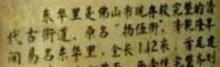 东华里是佛山市现存较完整的清
代古街道，原名“杨伍街”，清乾隆
间易名东华里。全长112米，首